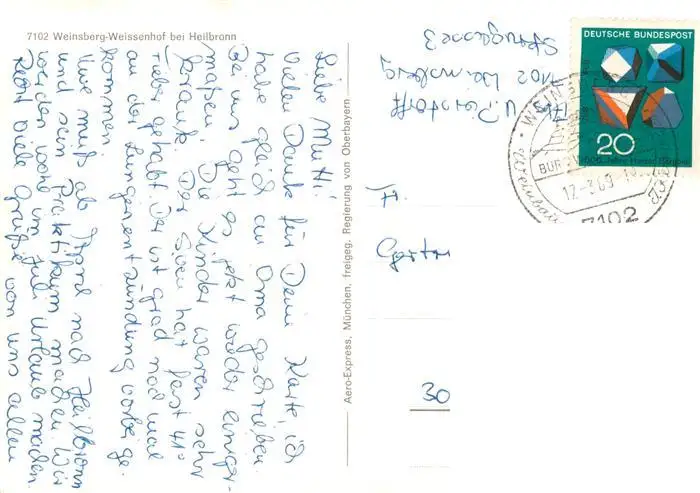 7102 Weinsberg-Weissenhof bei Heilbronn
Liebe Mutti!
Vielen Dank für Deine Karte, ich
habe gleich an Oma geschrieben.
Bei uns geht es jetzt wieder einiger-
maßen. Die Kinder waren sehr
krank. Der Sven hat fast 41°
Fieber gehabt. Der ist grad noch mal
an der Lungenentzündung vorbeige-
kommen.
Uwe muß ab April nach Heilbronn
und sein Praktikum machen. Wir
werden wohl im Juli Urlaub machen.
Recht viele Grüße von uns allen
Aero-Express, München, freigeg. Regierung von Oberbayern
Abs.
7102 Weinsberg
3
DEUTSCHE BUNDESPOST
20
WEINSBERG
BURG
12.-3.69
7102
Fr.
30